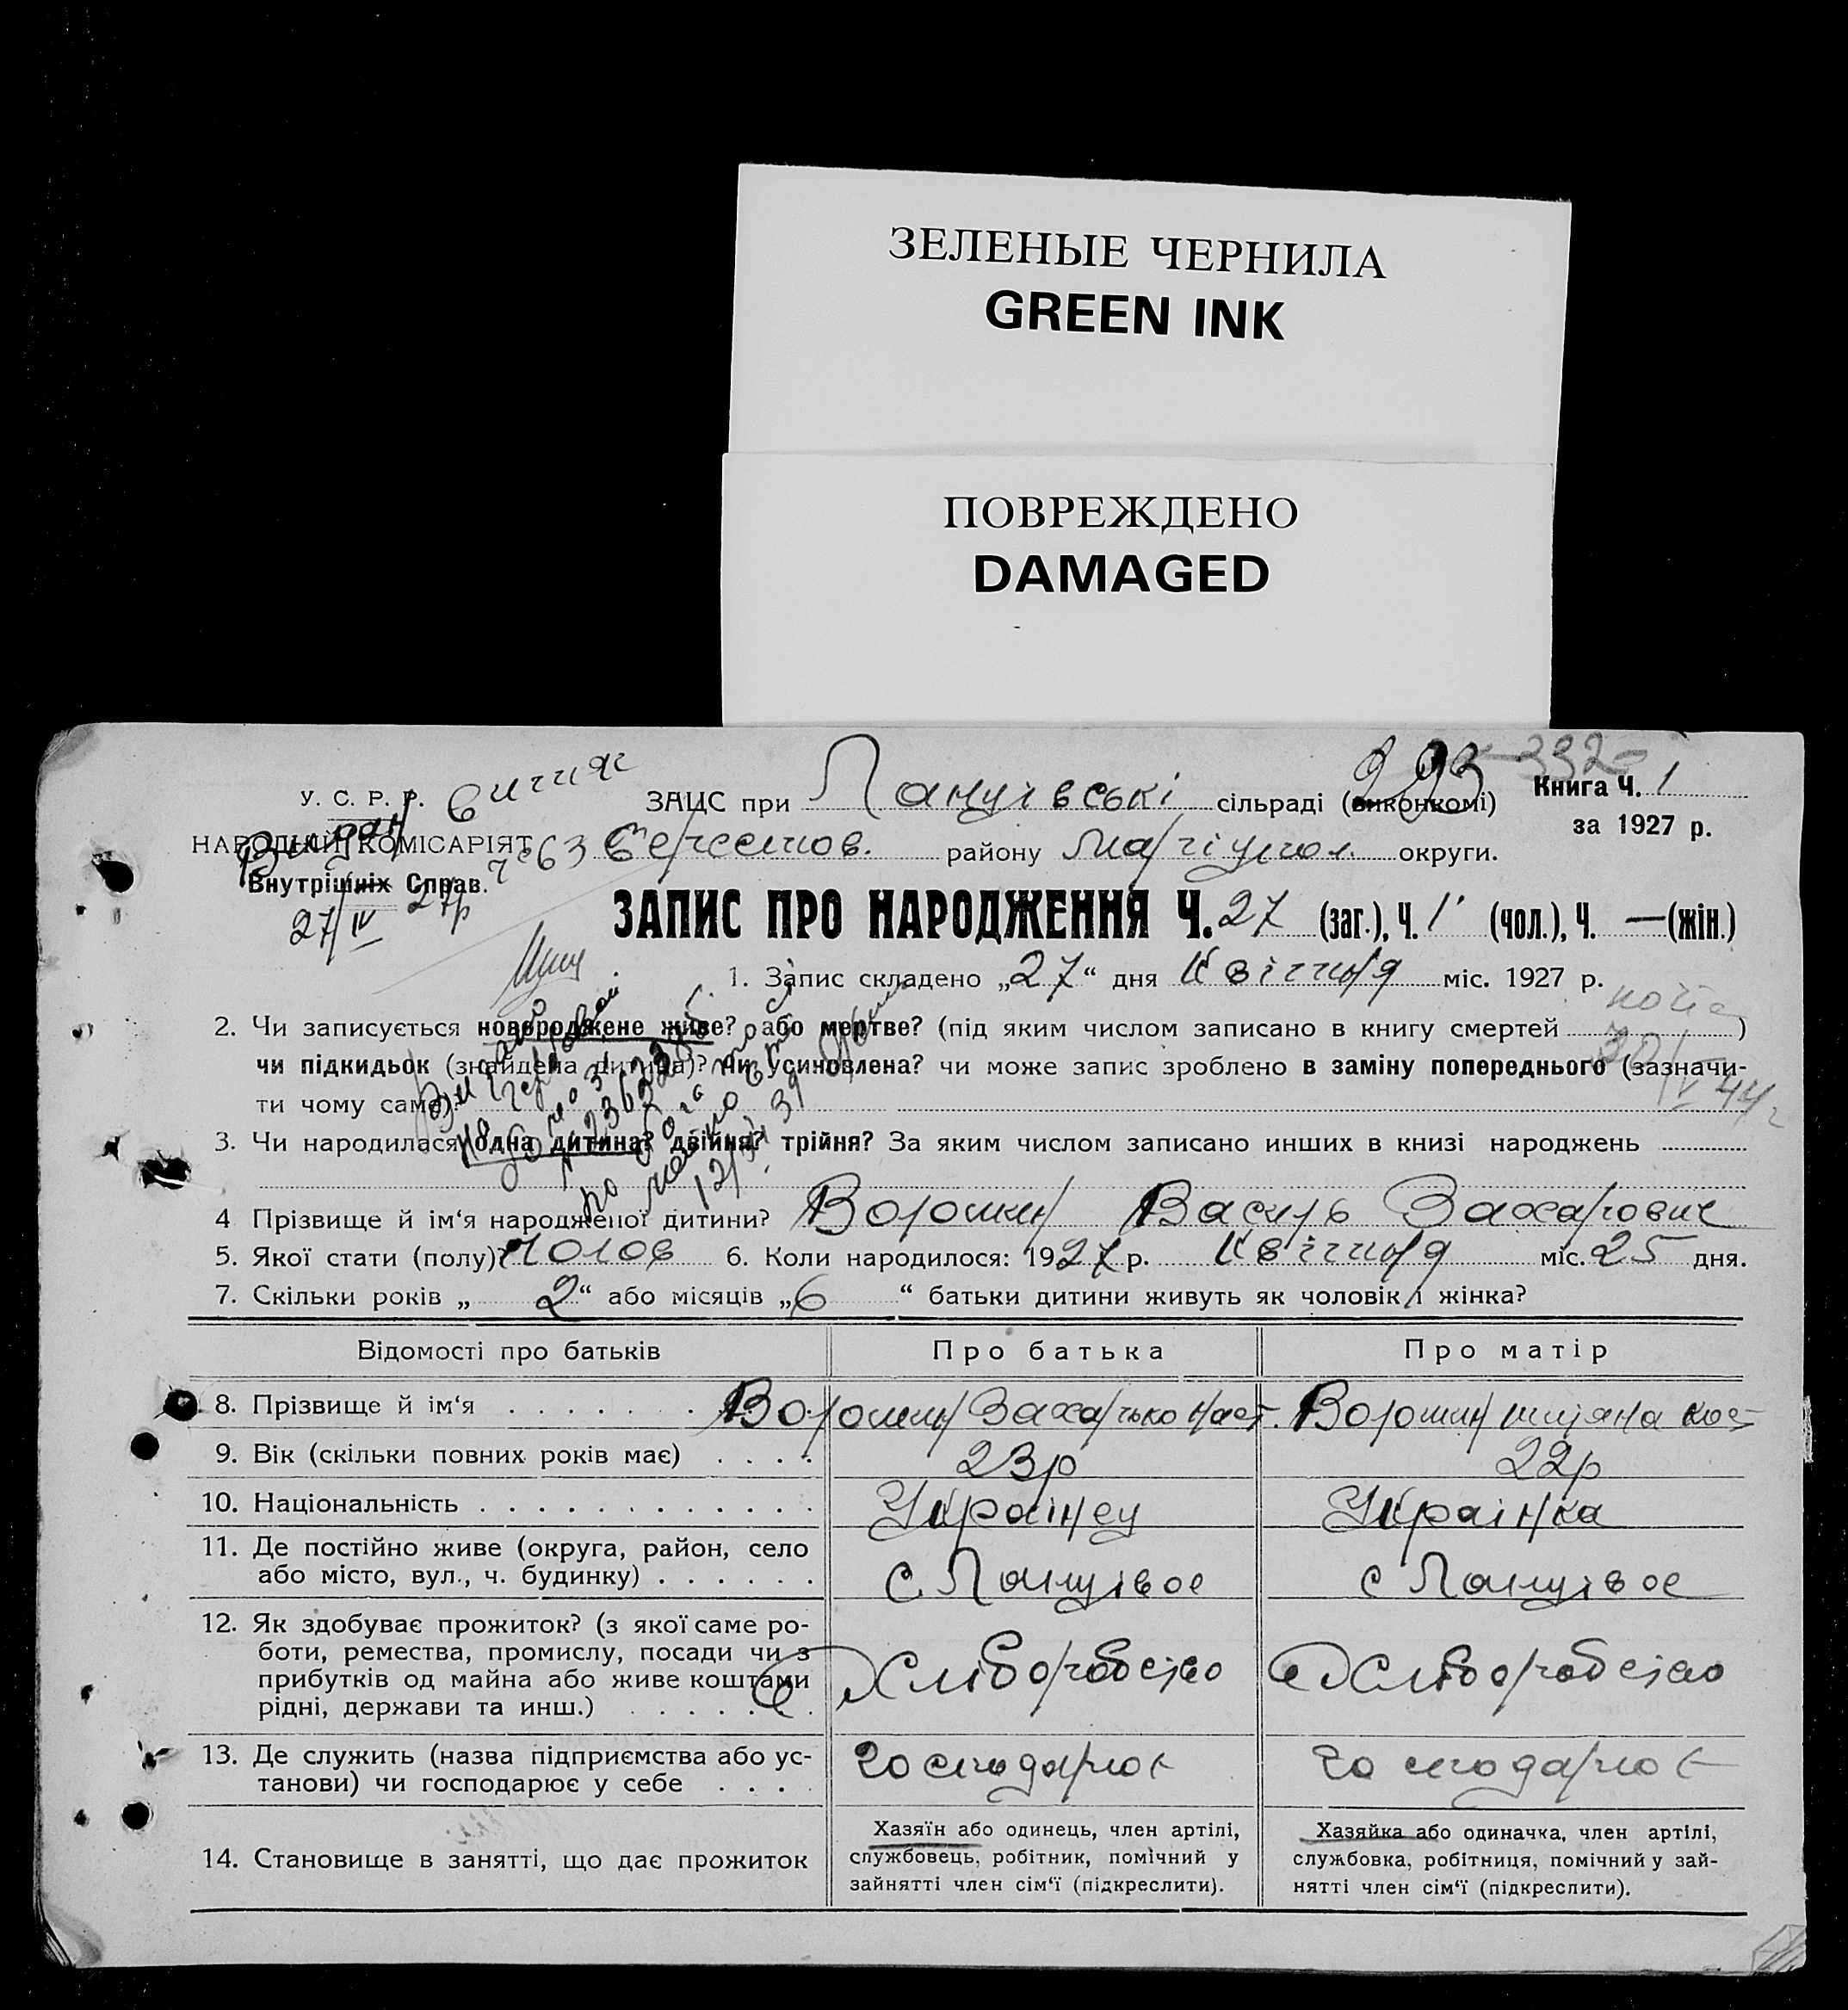 ЗЕЛЕНЫЕ ЧЕРНИЛА
GREEN INK
ПОВРЕЖДЕНО
DAMAGED
293 332
У. С. Р. Р. витяг
НАРОДНІЙ КОМІСАРІЯТ
Внутрішніх Справ.
Видан
ч 63
27/IV 27р
ЗАЦС при сільраді (виконкомі) Книга Ч. 1
району Маріупол. округи. за 1927 р.
ЗАПИС ПРО НАРОДЖЕННЯ Ч. 27 (заг.), Ч. 1 (чол.), Ч. — (жін.)
1. Запис складено „27“ дня Квітня міс. 1927 р.
2. Чи записується новороджене живе? або мертве? (під яким числом записано в книгу смертей )
чи підкидьок (знайдена дитина)? Чи усиновлена? чи може запис зроблено в заміну попереднього (зазначи-
ти чому саме)
3. Чи народилася одна дитина? двійня? трійня? За яким числом записано инших в книзі народжень
4 Прізвище й ім‘я народженої дитини? Ворошин Василь Захарович
5. Якої стати (полу)? чолов 6. Коли народилося: 1927 р. Квітня міс. 25 дня.
7. Скільки років „2“ або місяців „6“ батьки дитини живуть як чоловік і жінка?
Відомості про батьків Про батька Про матір
8. Прізвище й ім‘я . . . . . . . Ворошин Захарько Ворошин
9. Вік (скільки повних років має) . . . . 23р 22р
10. Національність . . . . . . . . . . . . . Українец Українка
11. Де постійно живе (округа, район, село
або місто, вул., ч. будинку) . . . . . . с с
12. Як здобуває прожиток? (з якої саме ро-
боти, ремества, промислу, посади чи з
прибутків од майна або живе коштами
рідні, держави та инш.) . . . . . . . Хліборобство Хліборобство
13. Де служить (назва підприємства або ус-
танови) чи господарює у себе . . . . господарює господарює
14. Становище в занятті, що дає прожиток
Хазяїн або одинець, член артілі,
службовець, робітник, помічний у
зайнятті член сім‘ї (підкреслити).
Хазяйка або одиначка, член артілі,
службовка, робітниця, помічний у зай-
нятті член сім‘ї (підкреслити).